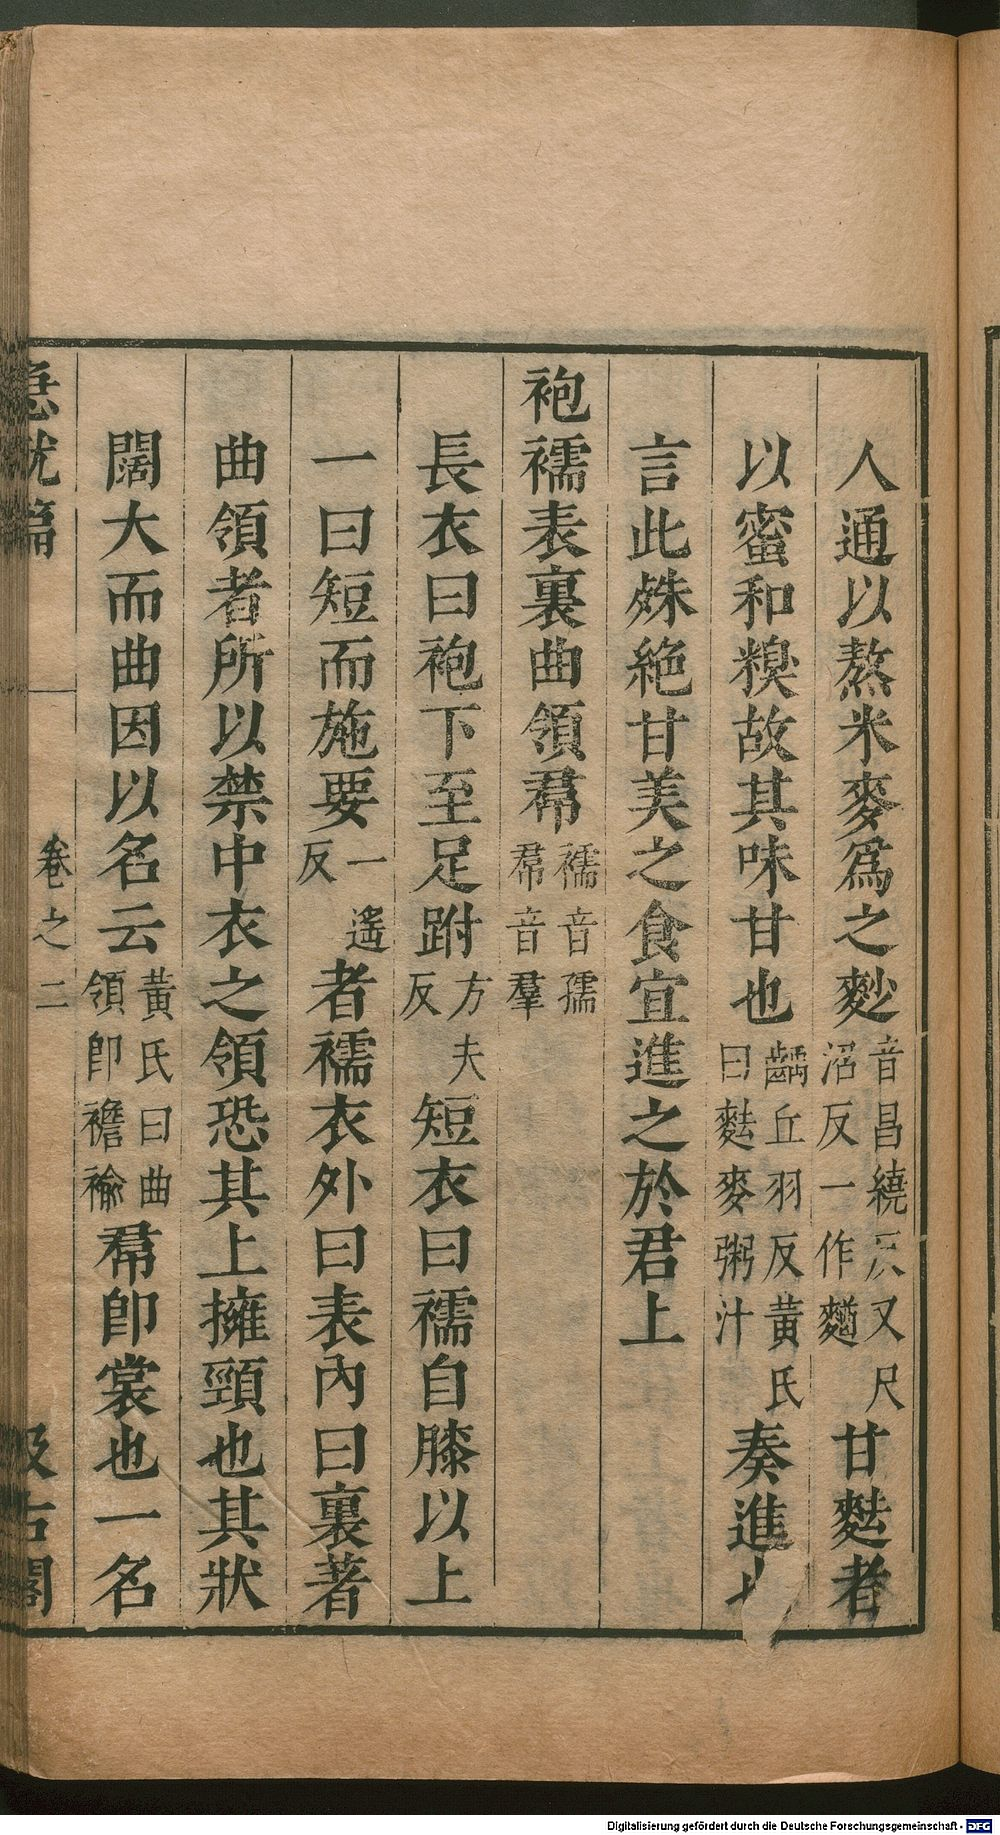 人通以熬米麥爲之麨音昌繞反又尺沼反一作䴺甘麮者
以蜜和糗故其味甘也齲丘羽反黃氏曰麮麥粥汁奏進
言此殊絶甘美之食宜進之於君上
袍襦表裏曲領帬襦音孺帬音羣
長衣曰袍下至足跗方夫反短衣曰襦自膝以上
一曰短而施要一遙反者襦衣外曰表內曰裏著
曲領者所以禁中衣之領恐其上擁頸也其狀
闊大而曲因以名云黃氏曰曲領卽襜褕帬卽裳也一名
急就篇 卷之二 汲古閣
Digitalisierung gefördert durch die Deutsche Forschungsgemeinschaft - DFG